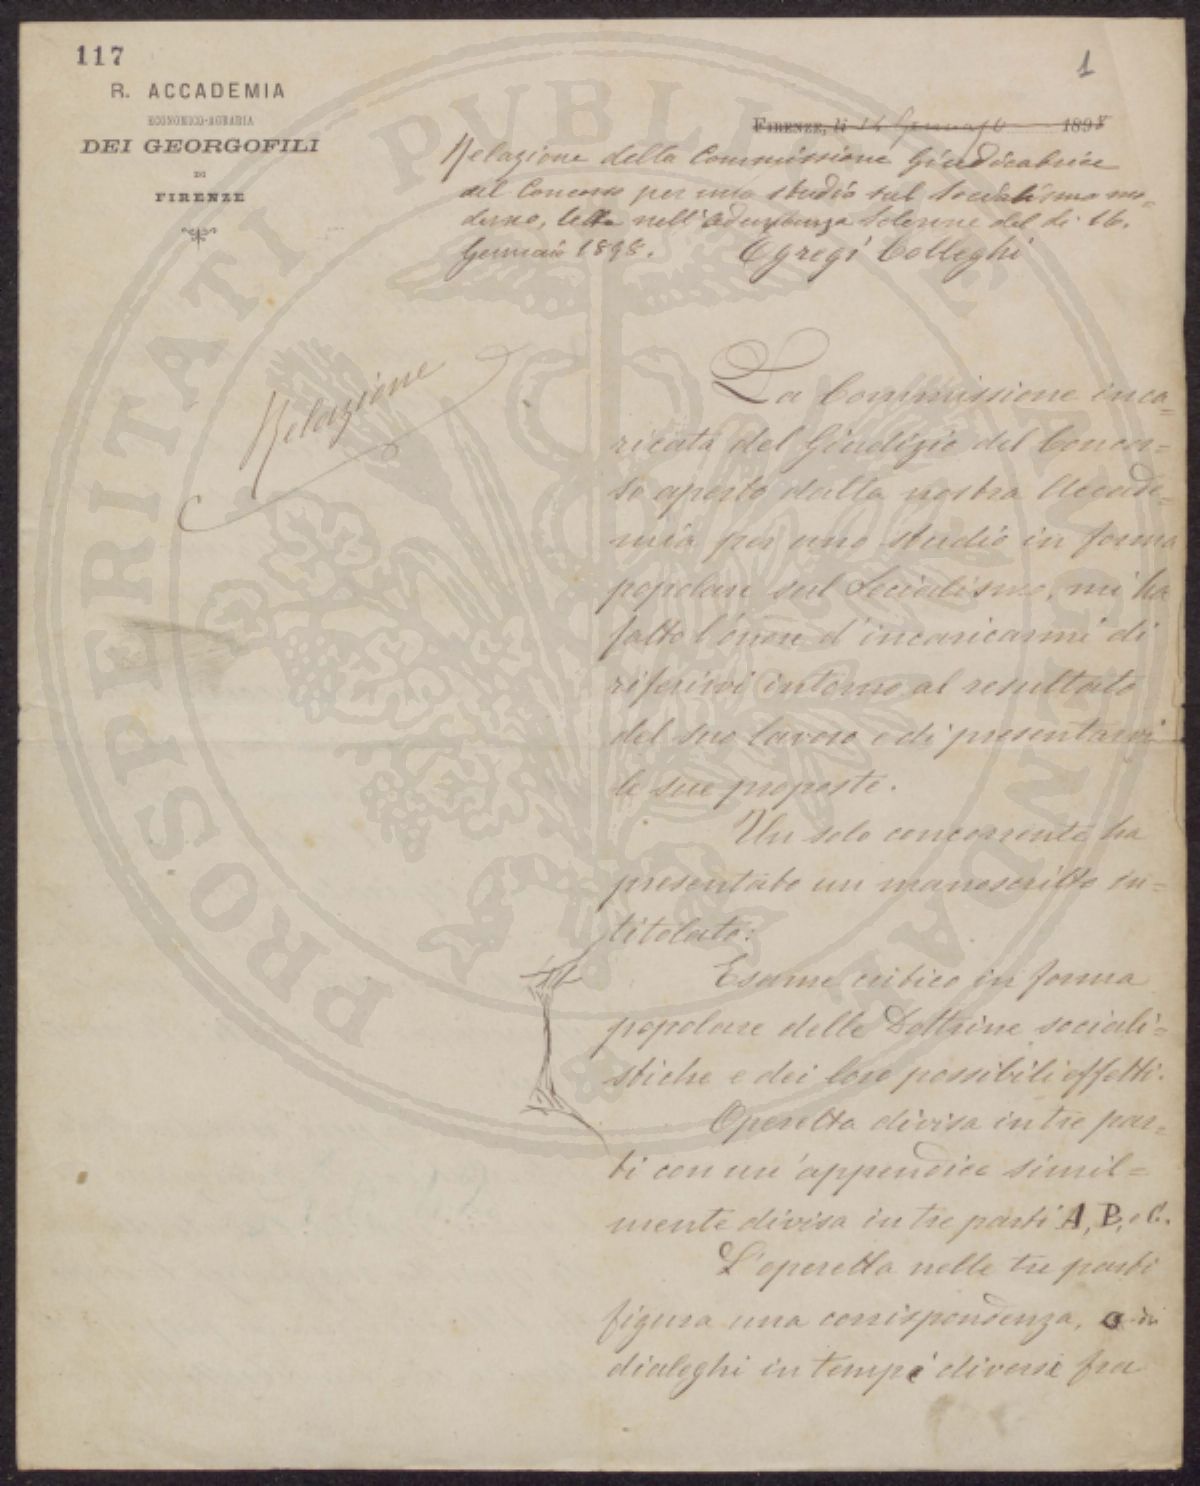 117
1
R. ACCADEMIA
ECONOMICO-AGRARIA
DEI GEORGOFILI
DI
FIRENZE
FIRENZE, li 14 Gennajo 1898
Relazione della Commissione Giudicatrice
del Concorso per uno studio sul Socialismo mo-
derno, letta nell'Adunanza Solenne del dì 16.
Gennaio 1898.
Egregi Colleghi
Relazione
La Commissione inca=
ricata del Giudizio del Concor=
so aperto dalla nostra Accade=
mia per uno studio in forma
popolare sul Socialismo, mi ha
fatto l'onore d'incaricarmi di
riferirvi intorno al resultato
del suo lavoro e di presentarvi
le sue proposte.
Un solo concorrente ha
presentato un manoscritto in=
titolato:
Esame critico in forma
popolare delle Dottrine sociali=
stiche e dei loro possibili effetti.
Operetta divisa in tre par=
ti con un'appendice simil=
mente divisa in tre parti A, B, e C.
L'operetta nelle tre parti
figura una corrispondenza, o in
dialoghi in tempi diversi fra
PROSPERITATI PUBLICAE AUGENDAE